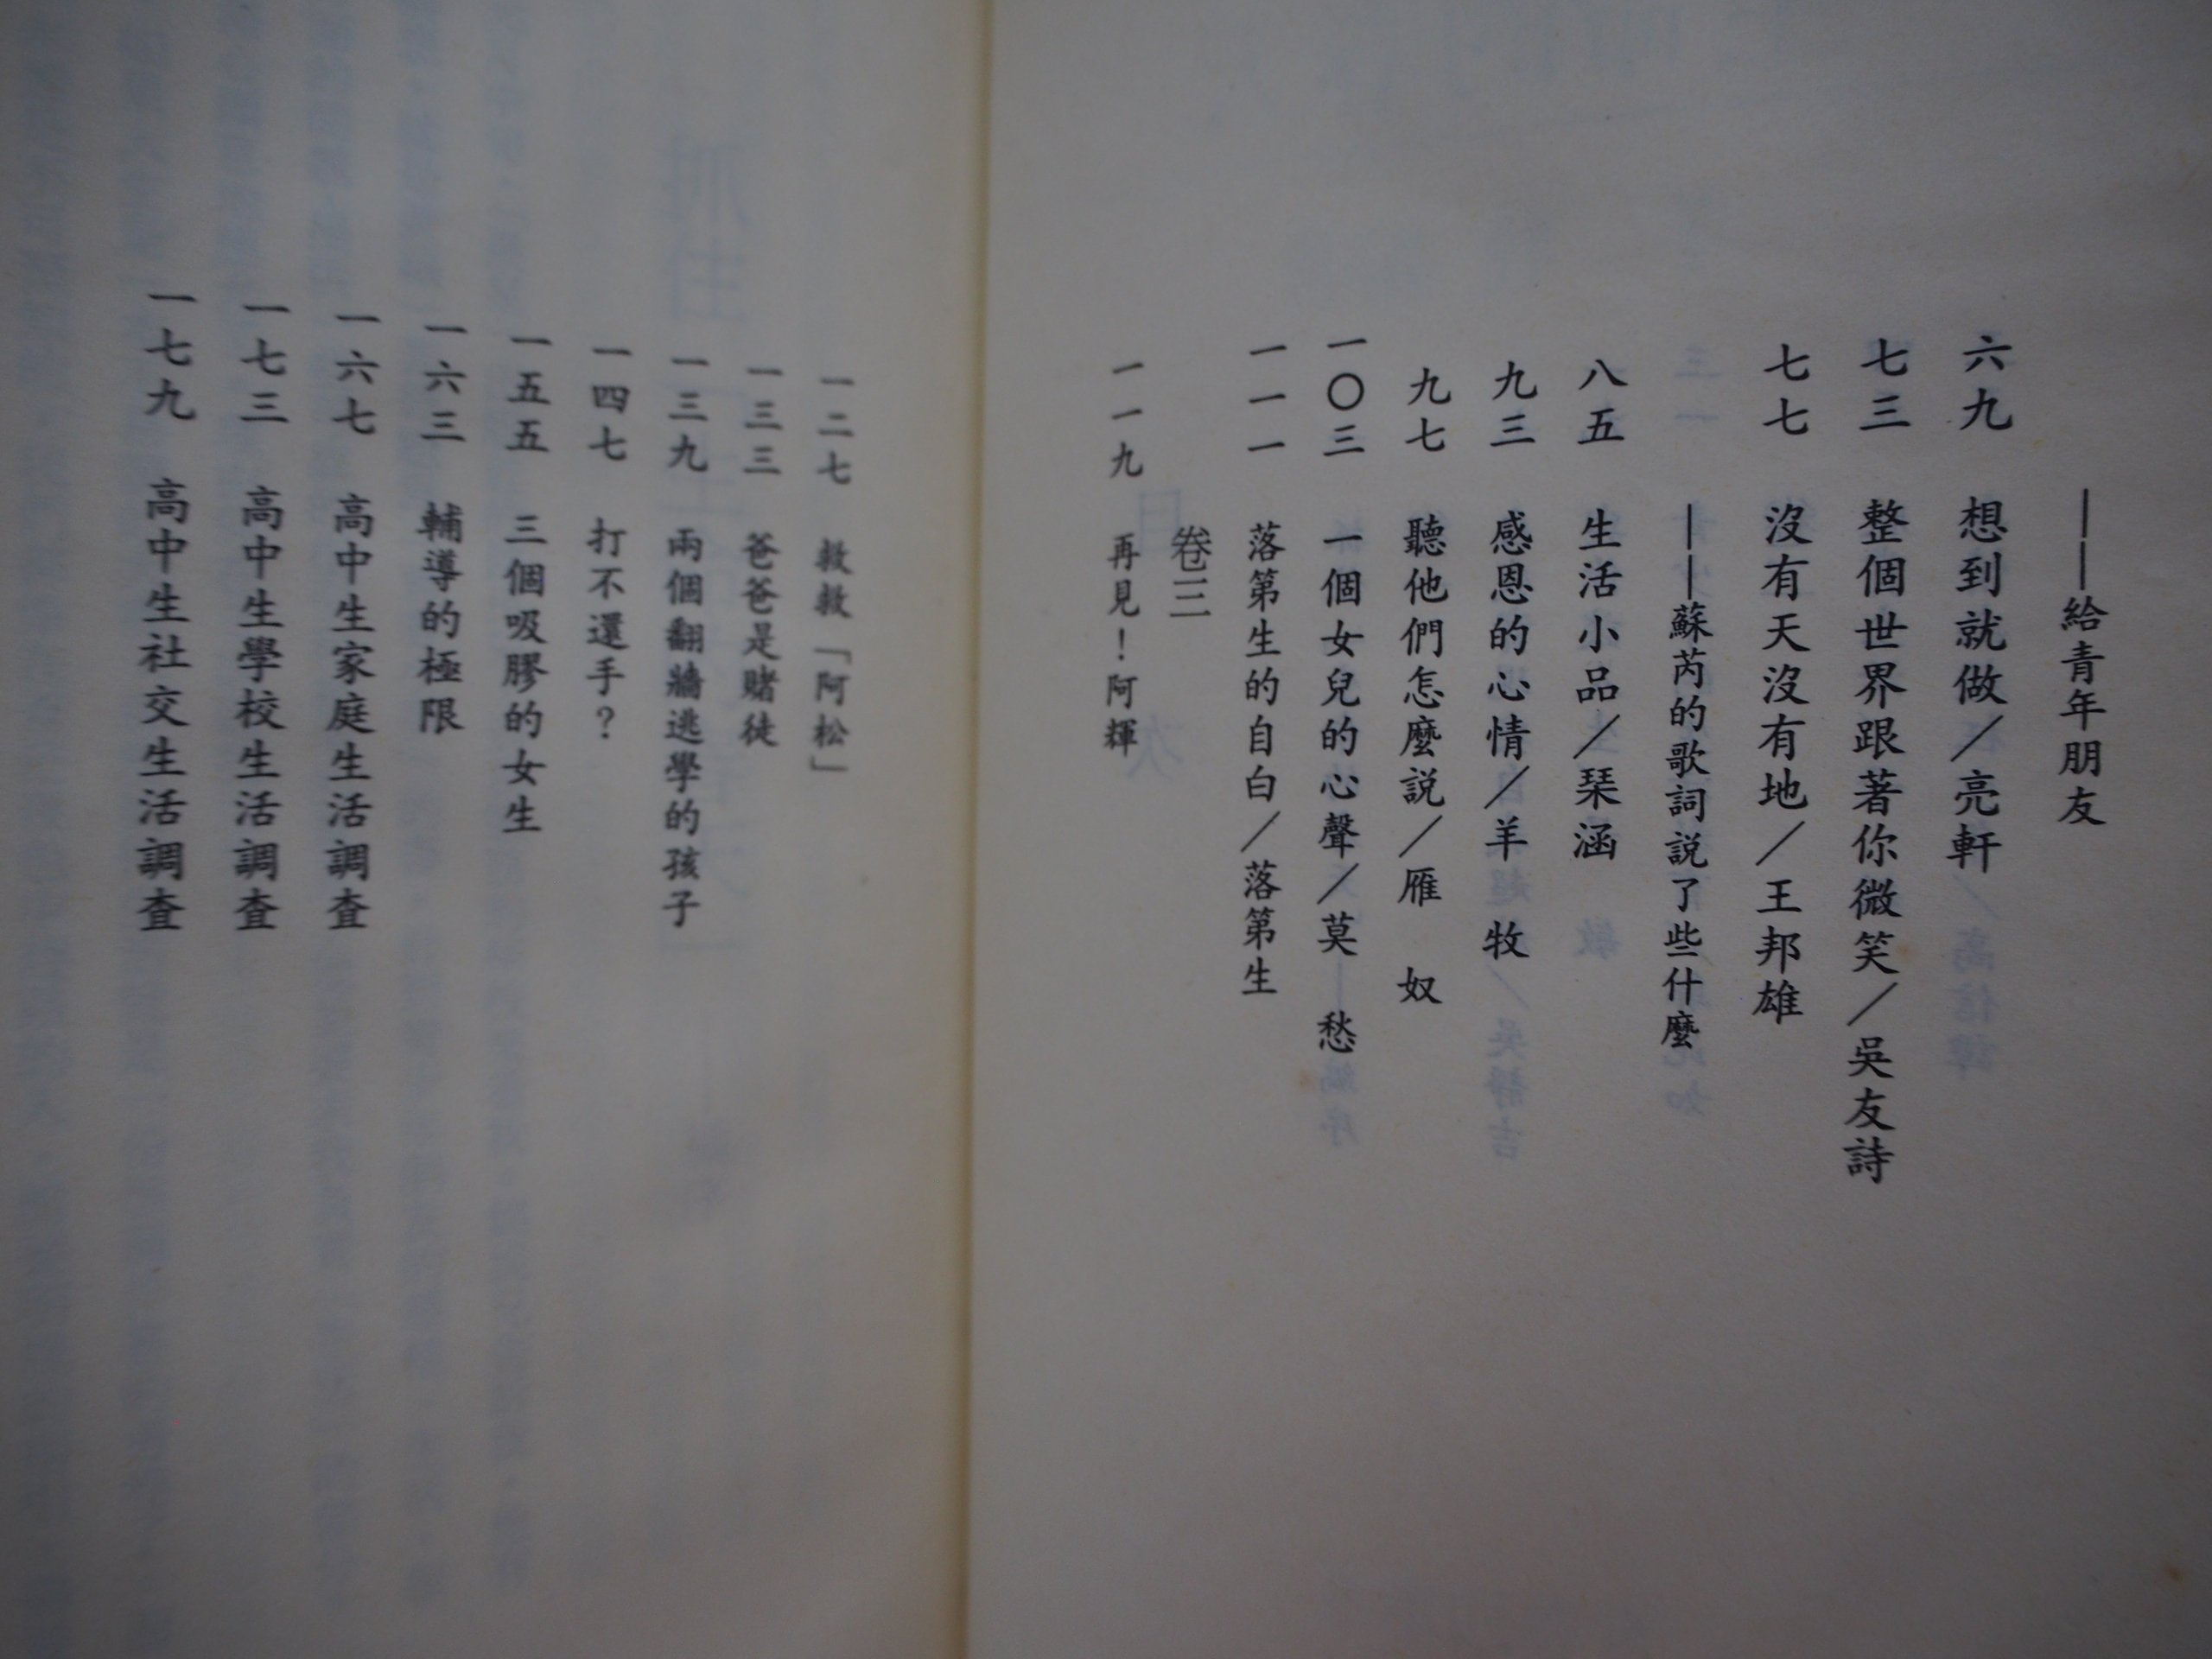 ──給青年朋友
六九　想到就做／亮軒
七三　整個世界跟著你微笑／吳友詩
七七　沒有天沒有地／王邦雄
──蘇芮的歌詞説了些什麼
八五　生活小品／琹涵
九三　感恩的心情／羊　牧
九七　聽他們怎麼説／雁　奴
一〇三　一個女兒的心聲／莫　愁
一一一　落第生的自白／落第生
卷三
一一九　再見！阿輝
一二七　救救「阿松」
一三三　爸爸是賭徒
一三九　兩個翻牆逃學的孩子
一四七　打不還手？
一五五　三個吸膠的女生
一六三　輔導的極限
一六七　高中生家庭生活調查
一七三　高中生學校生活調查
一七九　高中生社交生活調查